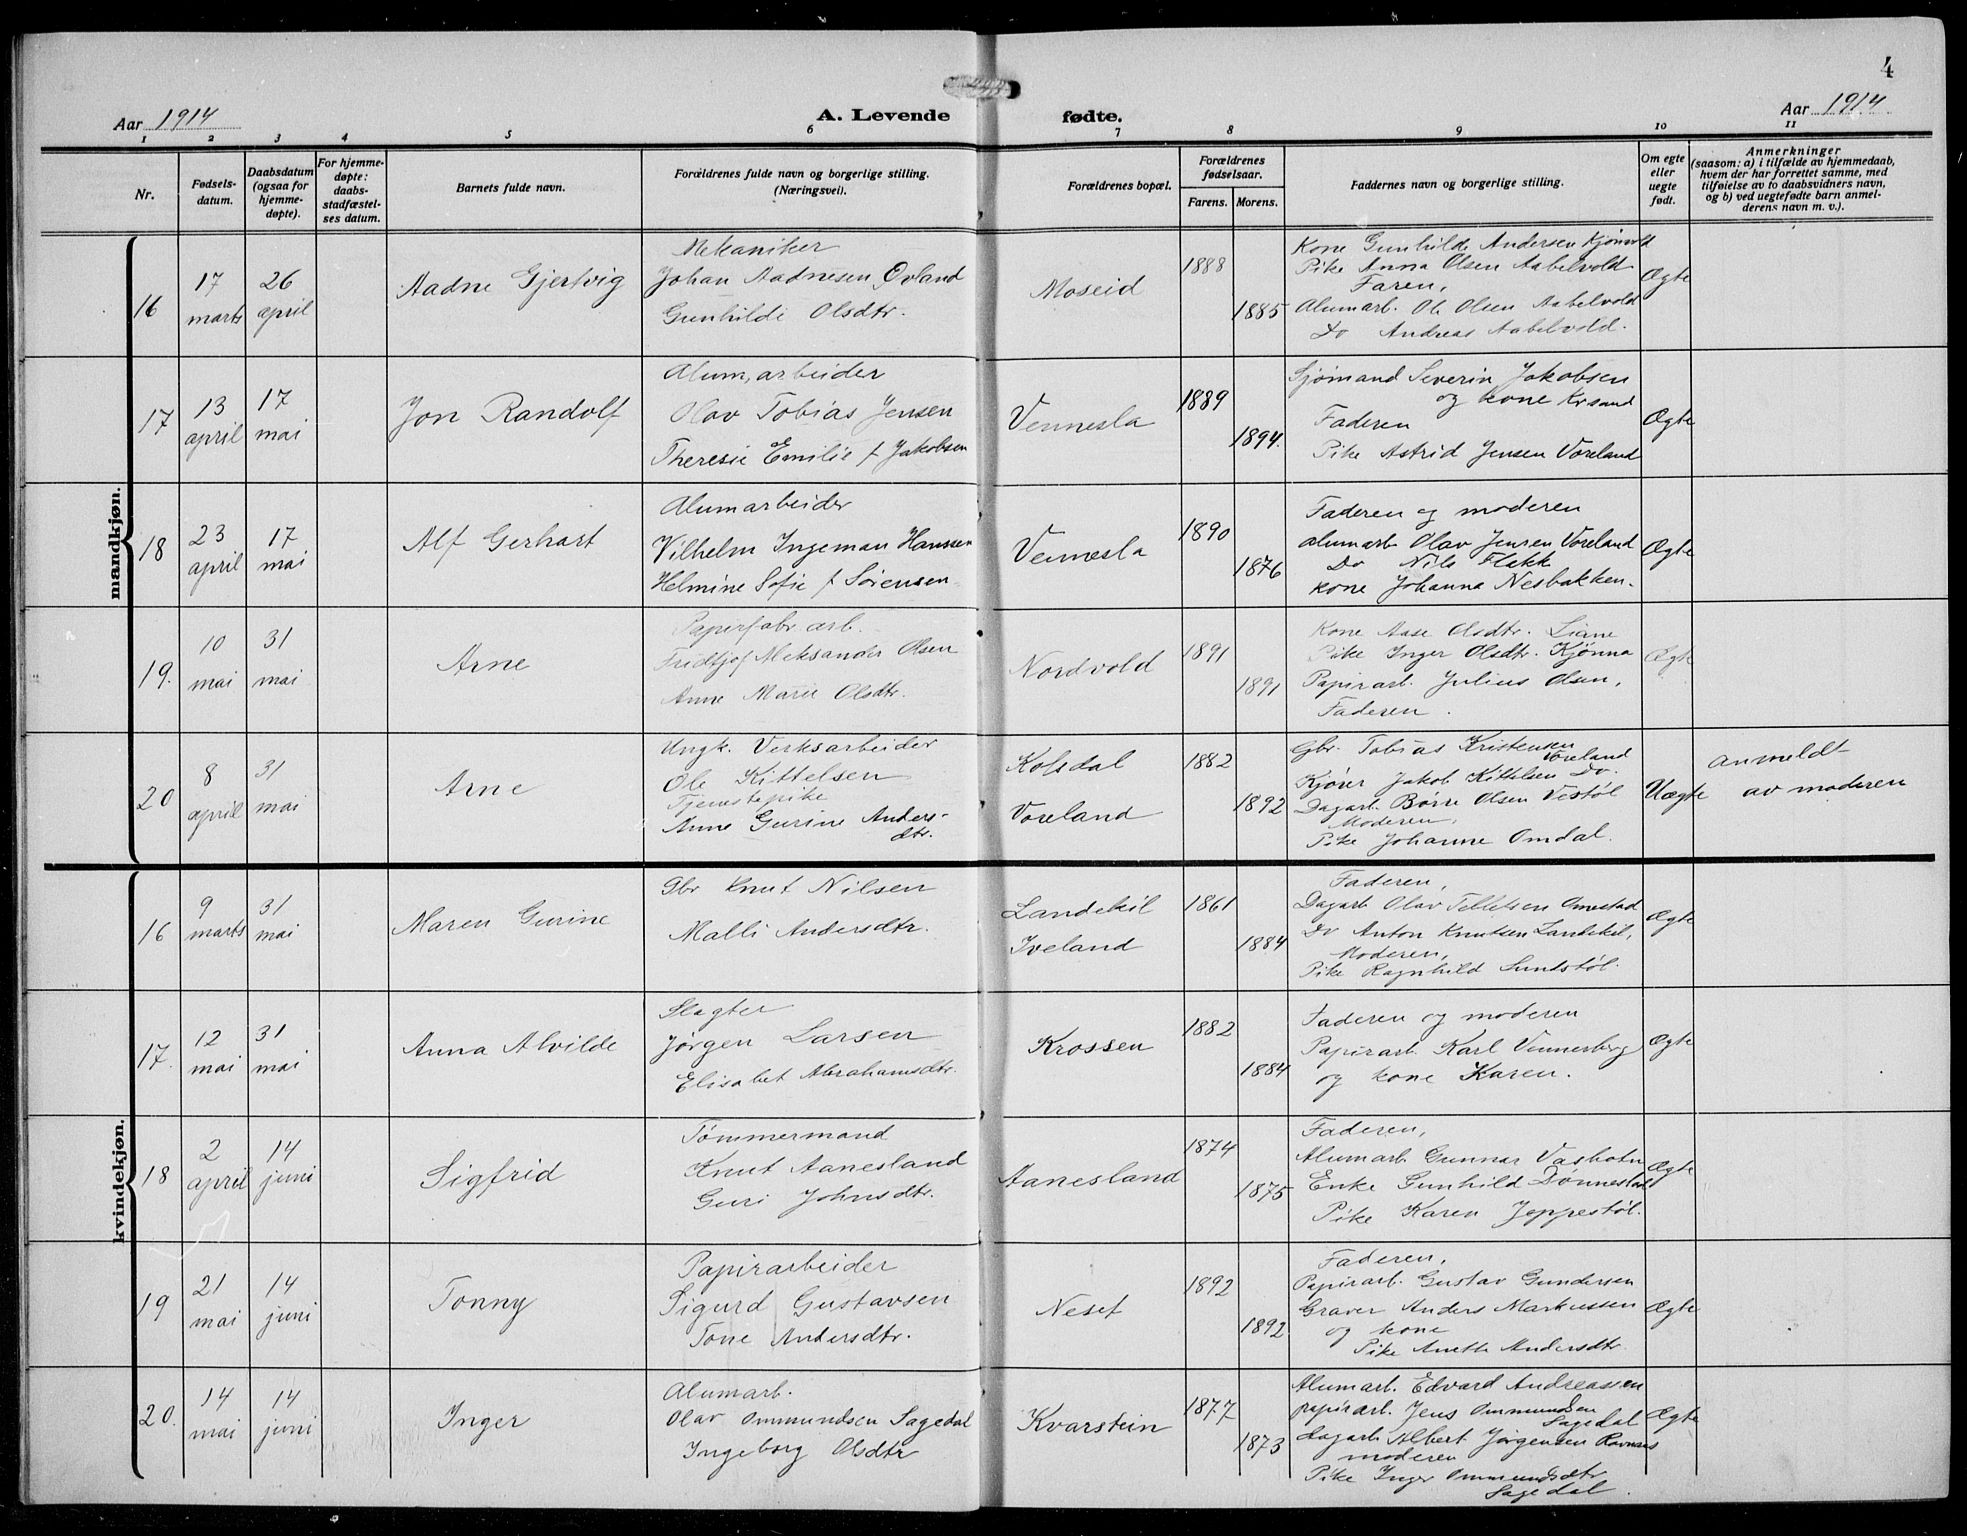 4
Aar 1914
A. Levende fødte.
Aar 1914
1 2 3 4 5 6 7 8 9 10 11
Nr.
Fødsels-
datum.
Daabsdatum
(ogsaa for
hjemme-
døpte).
For hjemme-
døpte:
daabs-
stadfæstel-
ses datum.
Barnets fulde navn.
Forældrenes fulde navn og borgerlige stilling.
(Næringsvei).
Forældrenes bopæl.
Forældrenes
fødselsaar.
Farens. Morens.
Faddernes navn og borgerlige stilling.
Om egte
eller
uegte
født.
Anmerkninger
(saasom: a) i tilfælde av hjemmedaab,
hvem der har forrettet samme, med
tilføielse av to daabsvidners navn,
og b) ved uegtefødte barn anmel-
derens navn m. v.).
mandkjøn.
16
17
marts
26
april
Aadne Gjertvig
Mekaniker
Johan Aadnesen Øvland
Gunhilde Olsdtr.
Moseid
1888
1885
Kone Gunhilde Andersen Kjønvold
Pike Anna Olsen Aabelvold
Faren,
Alumarb. Ole Olsen Aabelvold
Do Andreas Aabelvold.
Ægte
17
13
april
17
mai
Jon Randolf
Alum.arbeider
Olav Tobias Jensen
Theresie Emilie f Jakobsen
Vennesla
1889
1894.
Sjømand Severin Jakobsen
og kone Krsand
Faderen
Pike Astrid Jensen Voreland
Ægte
18
23
april
17
mai
Alf Gerhart
Alumarbeider
Vilhelm Ingeman Hanssen
Helmine Sofie f Sørensen
Vennesla
1890
1876
Faderen og moderen
alumarb Olav Jensen Voreland
Do Nils Flakk
kone Johanna Nesbakken.
Ægte
19.
10
mai
31
mai
Arne
Papirfabr. arb.
Fridtjof Aleksander Olsen
Anne Marie Olsdtr.
Nordvold
1891
1891
Kone Aase Olsdtr. Liane
Pike Inger Olsdtr. Kjønna
Papirarb. Julius Olsen,
Faderen.
Ægte
20
8
april
31
mai
Arne
Ungk. Verksarbeider
Ole Kittelsen
Tjenestepike
Anne Gurine Anders-
dtr.
Kolsdal
Voreland
1882
1892
Gbr. Tobias Kristensen
Voreland
Kjører Jakob Kittelsen Do.
Dagarb Børre Olsen Vestøl
Moderen,
Pike Johanne Omdal.
Uægte
anmeldt
av moderen
kvindekjøn.
16
9
marts
31
mai
Maren Gurine
Gbr Knut Nilsen
Malli Andersdtr.
Landekil
Iveland
1861
1884
Faderen,
Dagarb Olav Tellefsen Omestad
Do Anton Knutsen Landekil,
Moderen,
Pike Ragnhild Sundstøl.
Ægte
17.
12
mai
31
mai
Anna Alvilde
Slagter
Jørgen Larsen
Elisabet Abrahamsdtr.
Krossen
1882
1884
Faderen og moderen
Papirarb. Karl Vennerberg
og kone Karen.
Ægte
18
2
april
14
juni
Sigfrid
Tømmermand
Knut Aanesland
Guri Johnsdtr.
Aanesland
1874
1875
Faderen,
Alumarb. Gunnar Vasbotn
Enke Gunhild Dønnestad
Pike Karen Jeppestøl.
Ægte
19
21
mai
14
juni
Tonny
Papirarbeider
Sigurd Gustavsen
Tone Andersdtr.
Neset
1892
1892
Faderen,
Papirarb. Gustav Gundersen
Graver Anders Markussen
og kone
Pike Anette Andersdtr.
Ægte
20.
14
mai
14
juni
Inger
Alumarb.
Olav Ommundsen Sagedal
Ingeborg Olsdtr
Kvarstein
1877
1873
Alumarb. Edvard Andreassen
papirarb. Jens Ommundsen
Sagedal
Dagarb Albert Jørgensen Ravnaas
moderen
Pike Inger Ommundsdtr
Sagedal.
Ægte